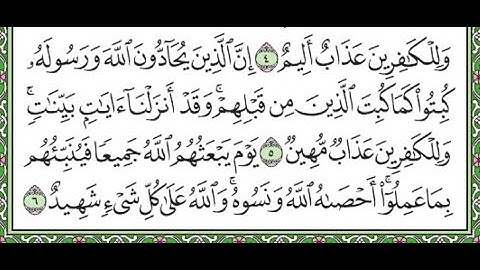 وَلِلْكَٰفِرِينَ عَذَابٌ أَلِيمٌ ٤ إِنَّ ٱلَّذِينَ يُحَآدُّونَ ٱللَّهَ وَرَسُولَهُۥ
كُبِتُوا۟ كَمَا كُبِتَ ٱلَّذِينَ مِن قَبْلِهِمْ ۚ وَقَدْ أَنزَلْنَآ ءَايَٰتٍۭ بَيِّنَٰتٍ ۚ
وَلِلْكَٰفِرِينَ عَذَابٌ مُّهِينٌ ٥ يَوْمَ يَبْعَثُهُمُ ٱللَّهُ جَمِيعًا فَيُنَبِّئُهُم
بِمَا عَمِلُوٓا۟ ۚ أَحْصَىٰهُ ٱللَّهُ وَنَسُوهُ ۚ وَٱللَّهُ عَلَىٰ كُلِّ شَىْءٍ شَهِيدٌ ٦